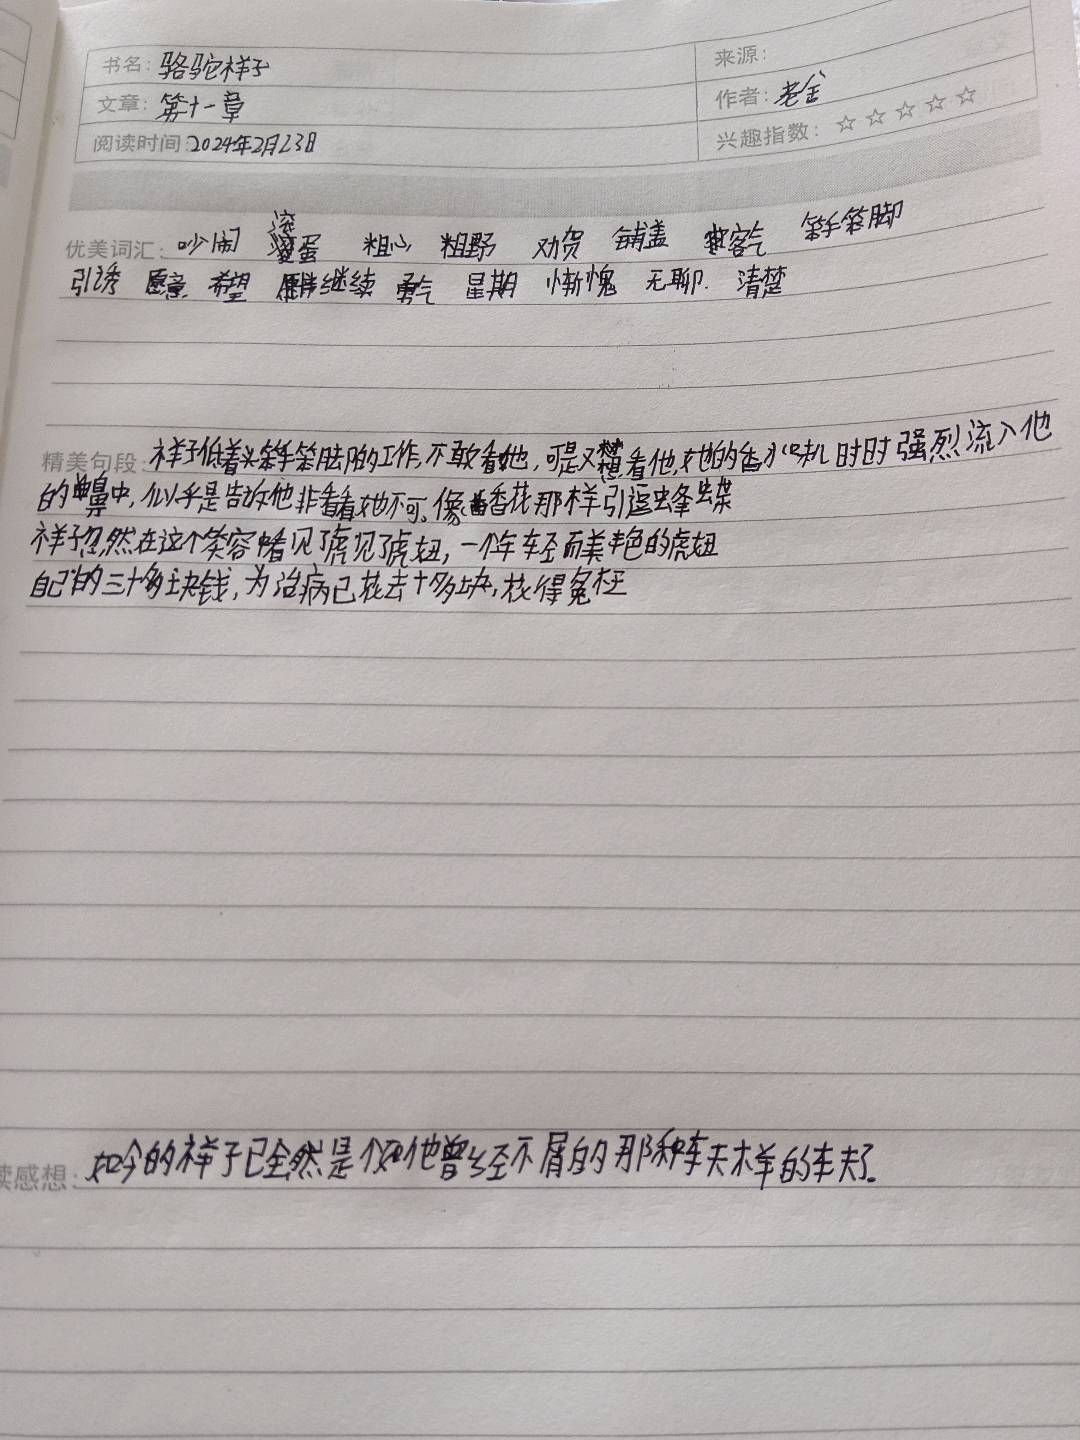 书名：骆驼祥子
来源：
文章：第十一章
作者：老舍
阅读时间：2024年2月23日
兴趣指数：☆☆☆☆☆
优美词汇：吵闹 滚蛋 粗心 粗野 劝贺 铺盖 客气 笨手笨脚
引诱 愿意 希望 继续 勇气 星期 惭愧 无聊 清楚
精美句段：祥子低着头笨手笨脚的工作，不敢看她，可是又想看他，她的香水味儿时时强烈流入他
的鼻中，似乎是告诉他非看看她不可，像香花那样引逗蜂蝶
祥子忽然在这个笑容中看见了虎见了虎妞，一个年轻而美艳的虎妞
自己的三十多块钱，为治病已花去十多块，花得冤枉
读感想：如今的祥子已全然是个如他曾经不屑的那种车夫木羊的车夫了。